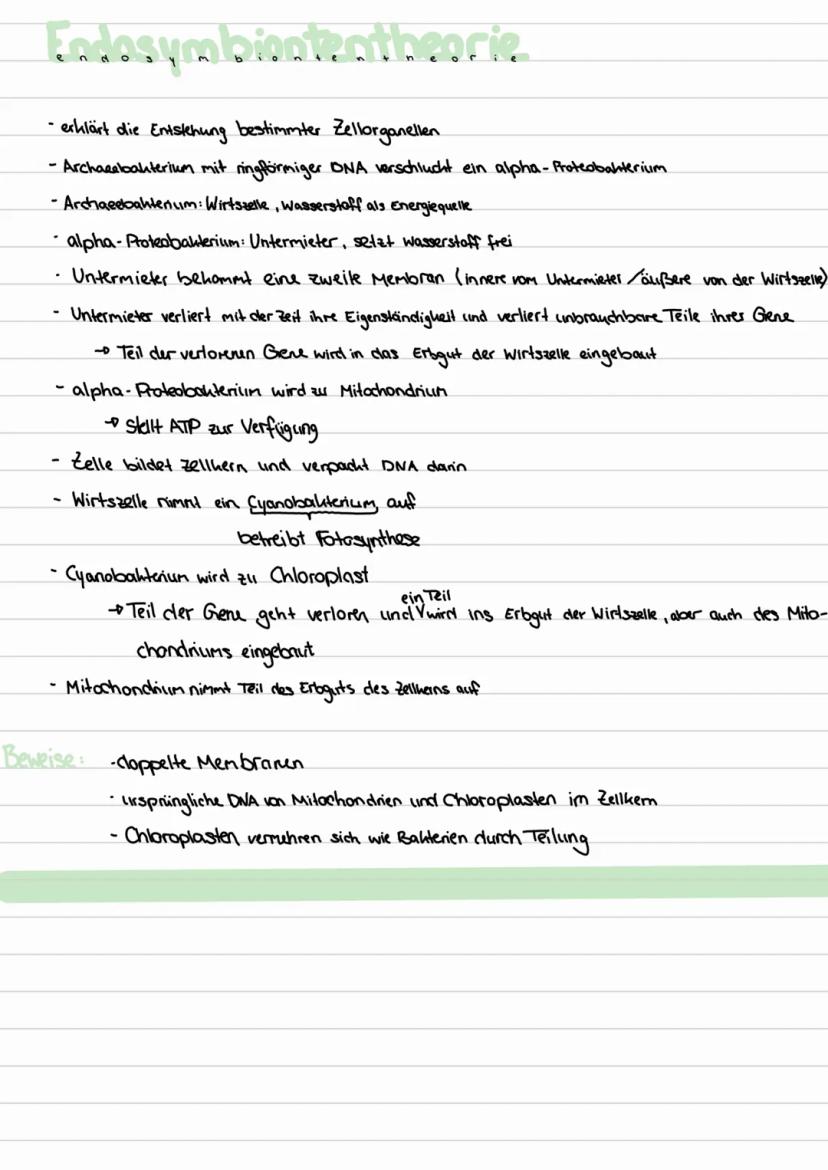 Endosymbiontentheorie
endosymbiontentheorie
- erklärt die Entstehung bestimmter Zellorganellen
- Archaebakterium mit ringförmiger DNA verschluckt ein alpha-Proteobakterium
- Archaeobakterium: Wirtszelle, Wasserstoff als Energiequelle
- alpha-Proteobakterium: Untermieter, setzt Wasserstoff frei
- Untermieter bekommt eine zweite Membran (innere vom Untermieter/äußere von der Wirtszelle)
- Untermieter verliert mit der Zeit ihre Eigenständigkeit und verliert unbrauchbare Teile ihrer Gene
→ Teil der verlorenen Gene wird in das Erbgut der Wirtszelle eingebaut
- alpha-Proteobakterium wird zu Mitochondrium
→ stellt ATP zur Verfügung
- Zelle bildet Zellkern und verpackt DNA darin
- Wirtszelle nimmt ein Cyanobakterium auf
betreibt Fotosynthese
- Cyanobakterium wird zu Chloroplast
ein Teil
→ Teil der Gene geht verloren und wird ins Erbgut der Wirtszelle, aber auch des Mito-
chondriums eingebaut
- Mitochondrium nimmt Teil des Erbguts des Zellkerns auf
Beweise: - doppelte Membranen
- ursprüngliche DNA von Mitochondrien und Chloroplasten im Zellkern
- Chloroplasten vermehren sich wie Bakterien durch Teilung